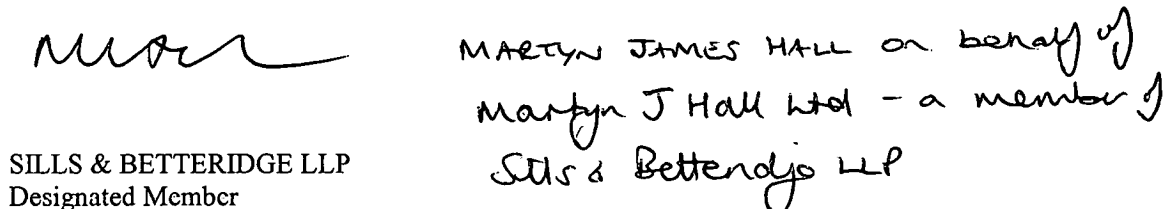 MARTYN JAMES HALL on behalf of
Martyn J Hall Ltd - a member of
Sills & Betteridge LLP
SILLS & BETTERIDGE LLP
Designated Member